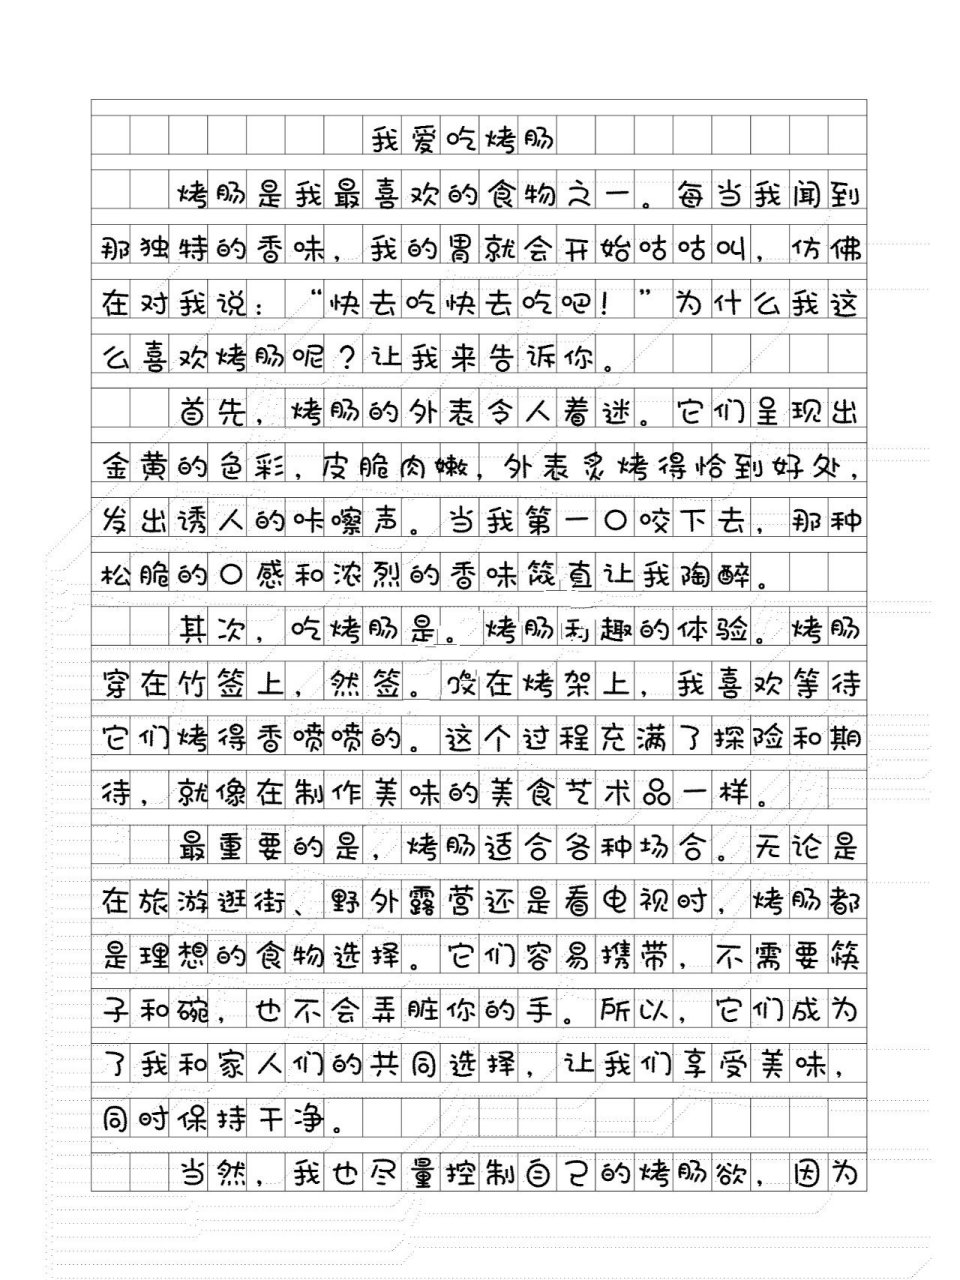 我爱吃烤肠
烤肠是我最喜欢的食物之一。每当我闻到
那独特的香味，我的胃就会开始咕咕叫，仿佛
在对我说：“快去吃快去吃吧！”为什么我这
么喜欢烤肠呢？让我来告诉你。
首先，烤肠的外表令人着迷。它们呈现出
金黄的色彩，皮脆肉嫩，外表炙烤得恰到好处，
发出诱人的咔嚓声。当我第一〇咬下去，那种
松脆的〇感和浓烈的香味简直让我陶醉。
其次，吃烤肠是。烤肠利趣的体验。烤肠
穿在竹签上，然签。没在烤架上，我喜欢等待
它们烤得香喷喷的。这个过程充满了探险和期
待，就像在制作美味的美食艺术品一样。
最重要的是，烤肠适合各种场合。无论是
在旅游逛街、野外露营还是看电视时，烤肠都
是理想的食物选择。它们容易携带，不需要筷
子和碗，也不会弄脏你的手。所以，它们成为
了我和家人们的共同选择，让我们享受美味，
同时保持干净。
当然，我也尽量控制自己的烤肠欲，因为